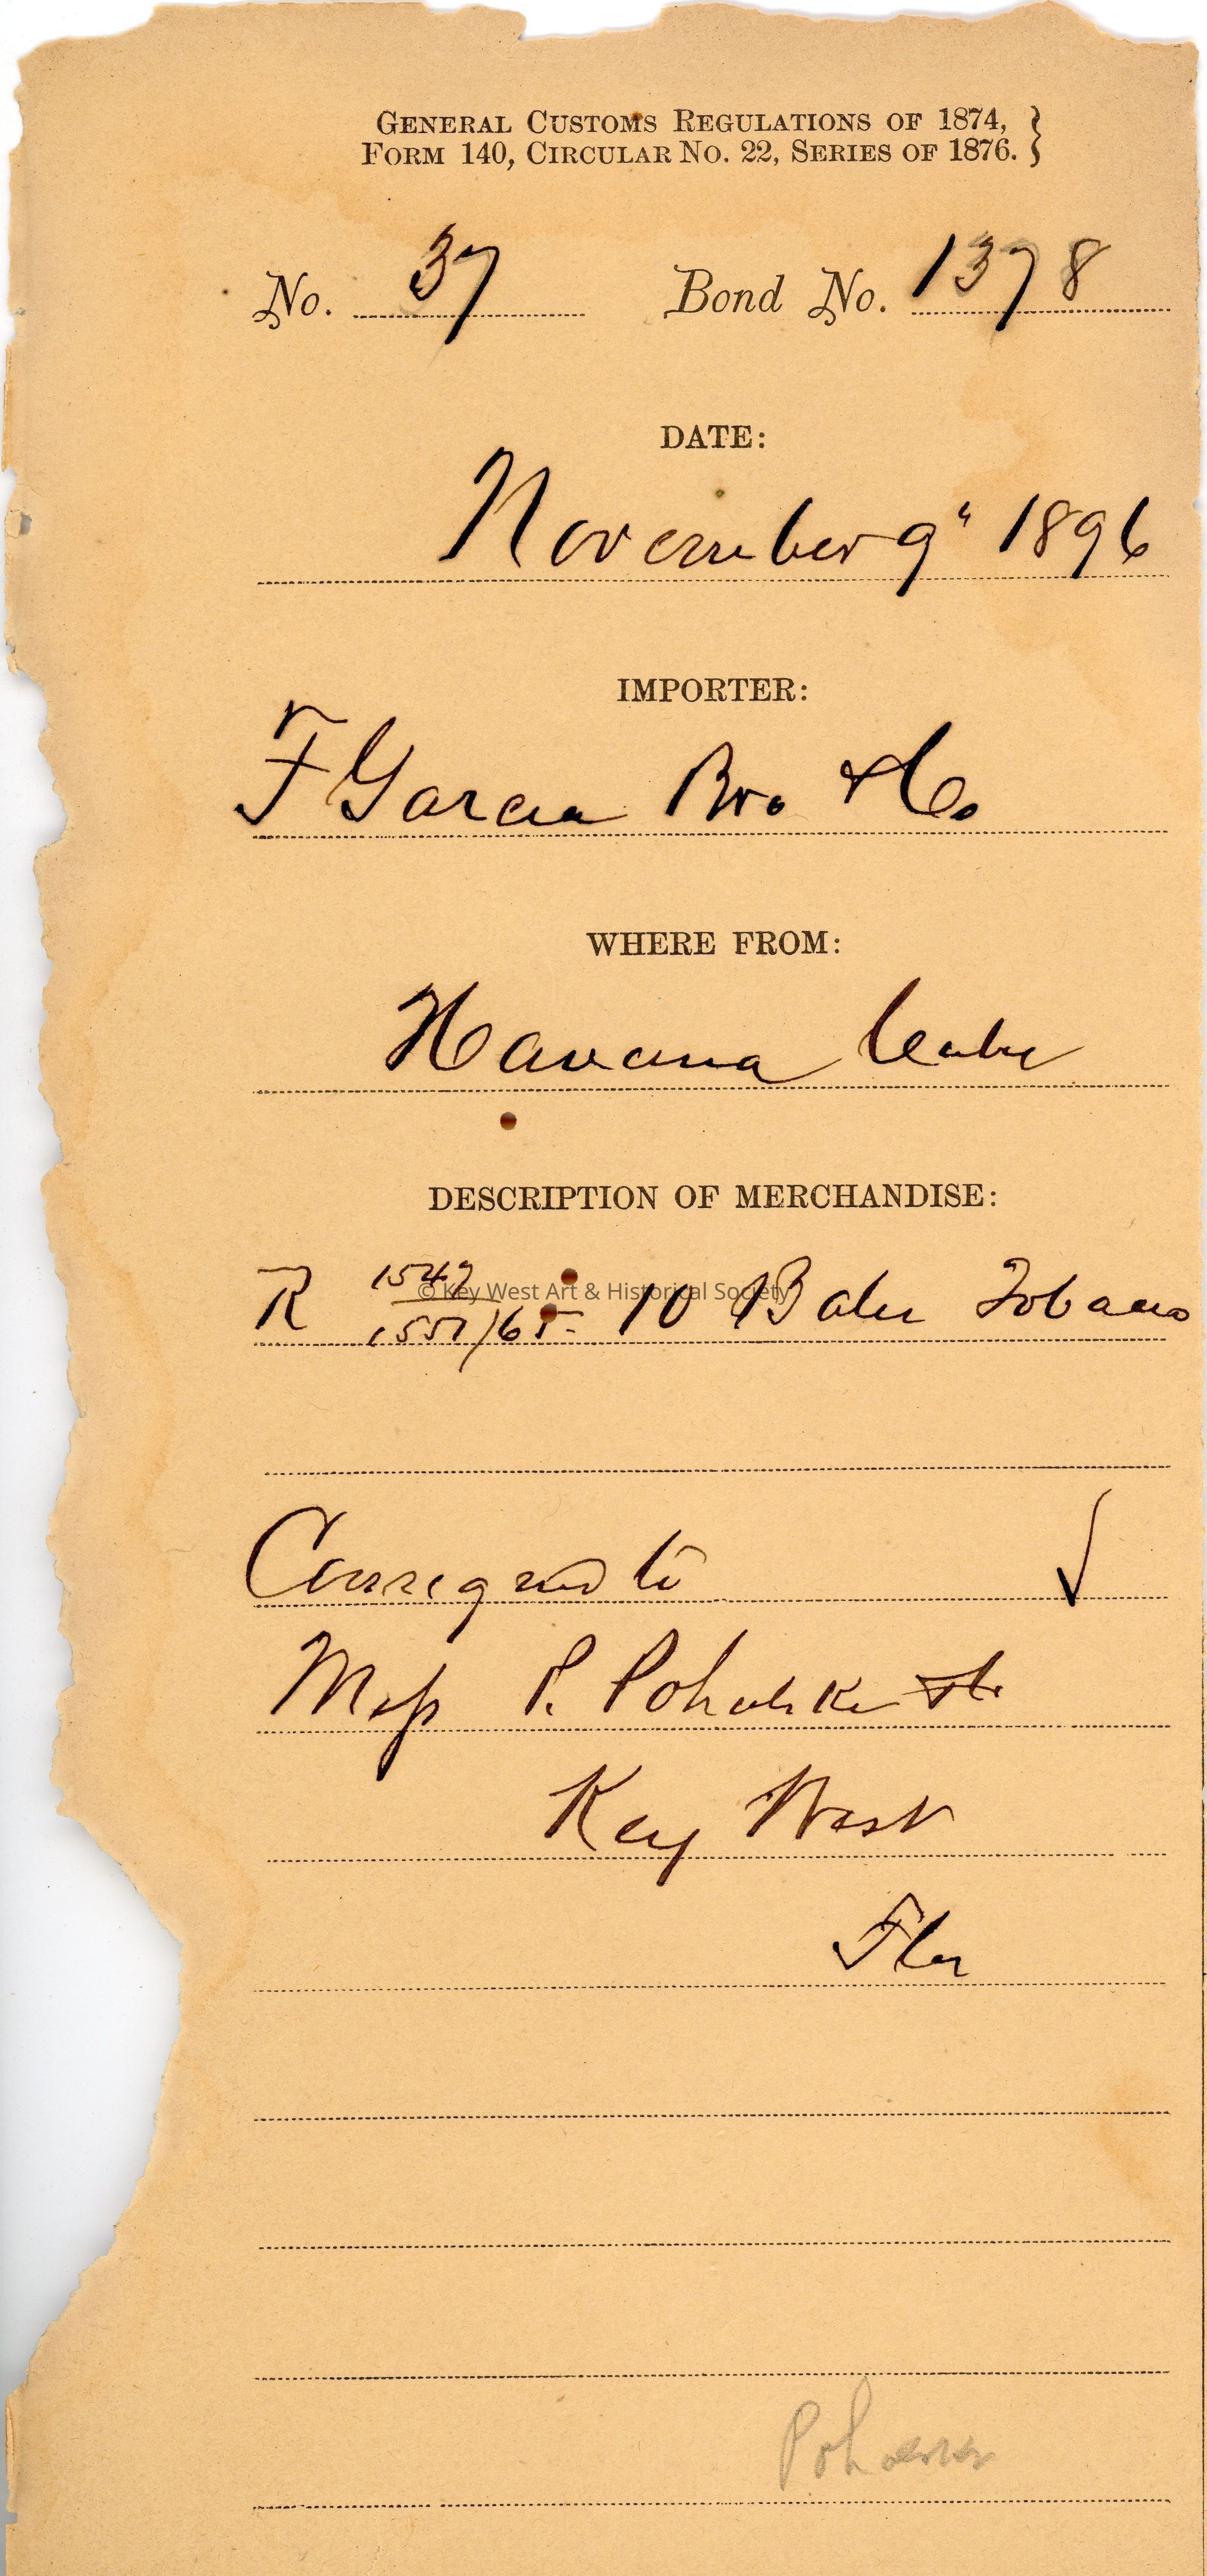 GENERAL CUSTOMS REGULATIONS OF 1874,
FORM 140, CIRCULAR NO. 22, SERIES OF 1876.
No. 37 Bond No. 1378
DATE:
November 9" 1896
IMPORTER:
F Garcia Bro & Co
WHERE FROM:
Havana Cuba
DESCRIPTION OF MERCHANDISE:
R 1542
© Key West Art & Historical Society
1551/65 - 10 Bales Tobacco
Consigned to
Mess P. Pohalski & Co
Key West
Fla